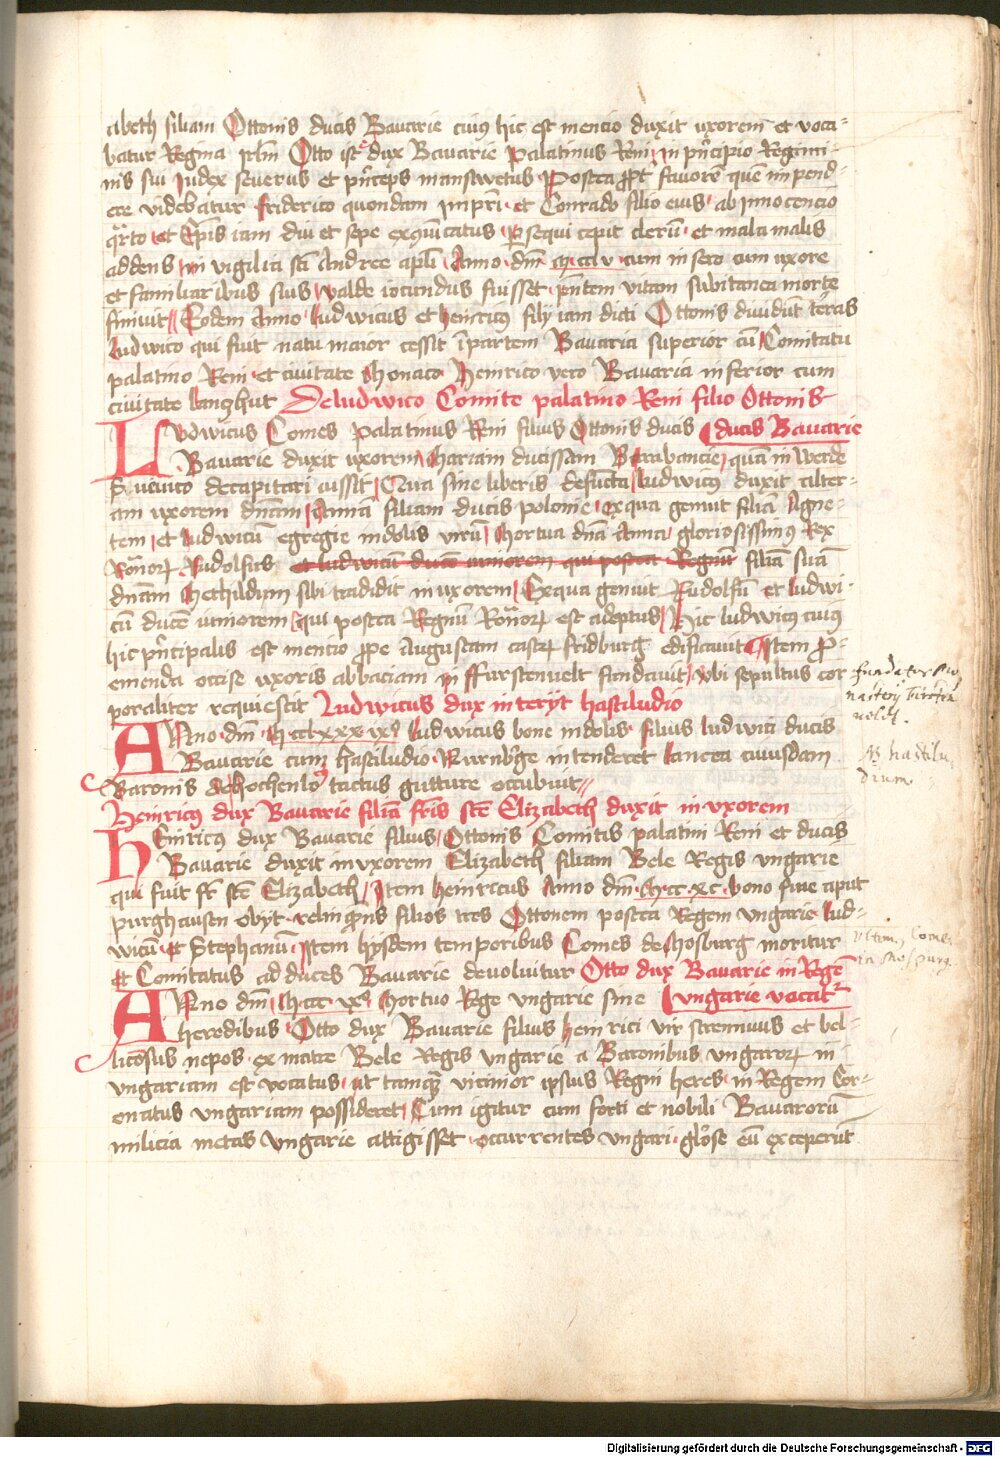 abeth filiam Ottonis ducis Bauarie cuiꝯ hic est mencio duxit vxorem et voca-
batur Regina Jrlm̄ Otto iste dux Bauarie Palatinus Reni in pn̄cipio Regimi
nis sui Judex seuerus et pn̄ceps manswetus Postea ꝓpt̄ fauorē quē impend-
ere videbatur friderico quondam Jmpr̄i et Conrado filio eius ab innocencio
q̄rto et Ep̄is iam diu et sepe excōīcatus ꝑsequi cepit clerū et mala malis
addens in vigilia sc̄i Andree apl̄i Anno dn̄i M cc lv cum in sero cum vxore
et familiaribus suis valde iocundus fuisset pn̄tem vitam subitanea morte
finiuit Eodem Anno ludwicus et heinricꝯ filij iam dicti Ottonis diuidūt terras
ludwico qui fuit natu maior cessit ī partem Bauaria superior cū Comitatu
palatino Reni et ciuitate Monaco Heinrico vero Bauaria inferior cum
ciuitate lanczhut De ludwico Comite palatino Reni filio Ottonis
Ludwicus Comes Palatinus Reni filius Ottonis ducis ducis Bauarie
Bauarie duxit vxorem Mariam ducissam Barabancie quā in werde
Sueuico decapitari iussit Qua sine liberis defūcta ludwicꝯ duxit alter-
am vxorem dn̄am Anna filiam ducis polonie ex qua genuit filiā Agne-
tem et ludwicū egregie indolis virū Mortua dn̄a Anna gloriosissimꝯ Rex
Romanoꝝ Rudolfus et ludwicū ducē iuniorem qui postea Regnū filiā suā
dn̄am Mechildim sibi tradidit in vxorem Ex qua genuit Rudolfū et ludwi-
cū ducē iuniorem qui postea Regnū Romanoꝝ est adeptus Hic ludwicꝯ cuiꝯ
hic pn̄cipalis est mencio ꝓpe Augustam castrꝫ fridburg edificauit Item ꝓ
emenda occise vxoris abbaciam in ffurstenuelt fundauit vbi sepultus cor
poraliter requiescit Ludwicus dux interijt hastiludio
fundator mo
nasterij furstn
veldt.
Anno dn̄i M cc lxxxix ludwicus bone indolis filius ludwici ducis
Bauarie cum hastiludio Nurnb̄ge intenderet lancea cuiusdam
Baronis de Hochenlo tactus gutture occubuit
hastilu
dium.
Heinricꝯ dux Bauarie filiā fr̄is sc̄e Elizabeth duxit in vxorem
Heinricꝯ dux Bauarie filius Ottonis Comitis palatini Reni et ducis
Bauarie duxit in vxorem Elizabeth filiam Bele Regis vngarie
qui fuit fr̄ sc̄e Elizabeth Item heinricus Anno dn̄i M cc xc bono fine aput
purghausen obijt relinq̄ns filios tres Ottonem postea Regem vngarie lud-
wicū et Stephanū Item hijsdem temporibus Comes de Mosburg moritur
et Comitatus ad duces Bauarie deuoluitur Otto dux Bauarie in Regē
vltimꝯ Come
in Mospurg.
Anno dn̄i M ccc vꝯ Mortuo Rege vngarie sine vngarie vocatr
heredibus Otto dux Bauarie filius heinrici vir strennuus et bel-
licosus nepos ex matre Bele Regis vngarie a Baronibus vngaroꝝ in
vngariam est vocatus vt tamqꝫ vicinior ipsius Regni heres in Regem Cor-
onatus vngariam possideret Cum igitur cum forti et nobili Bauaroru
milicia metas vngarie attigisset occurrentes vngari gl̄ose eū exceperūt